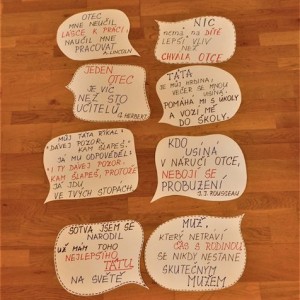 OTEC
MNE NEUČIL
LÁSCE K PRÁCI
NAUČIL MNE
PRACOVAT
A. LINCOLN
NIC
NEMÁ NA DÍTĚ
LEPŠÍ VLIV
NEŽ
CHVÁLA OTCE
JEDEN
OTEC
JE VÍC
NEŽ STO
UČITELŮ
G. HERBERT
TÁTA
JE MŮJ HRDINA:
VEČER SE MNOU
USÍNÁ
POMÁHÁ MI S ÚKOLY
A VOZÍ MĚ
DO ŠKOLY.
MŮJ TÁTA ŘÍKAL:
DÁVEJ POZOR,
KAM ŠLAPEŠ.
JÁ MU ODPOVĚDĚL:
I TY DÁVEJ POZOR,
KAM ŠLAPEŠ, PROTOŽE
JÁ JDU
VE TVÝCH STOPÁCH.
KDO
USÍNÁ
V NÁRUČÍ OTCE,
NEBOJÍ SE
PROBUZENÍ
J. J. ROUSSEAU
SOTVA JSEM SE
NARODIL
UŽ MÁM TOHO
NEJLEPŠÍHO
TÁTU
NA SVĚTĚ
MUŽ,
KTERÝ NETRÁVÍ
ČAS S RODINOU
SE NIKDY NESTANE
SKUTEČNÝM
MUŽEM